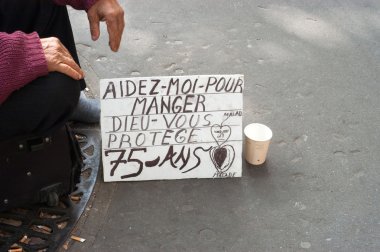 AIDEZ-MOI-POUR
MANGER
MALAD
DIEU-VOUS
PROTÈGE
75-ANS